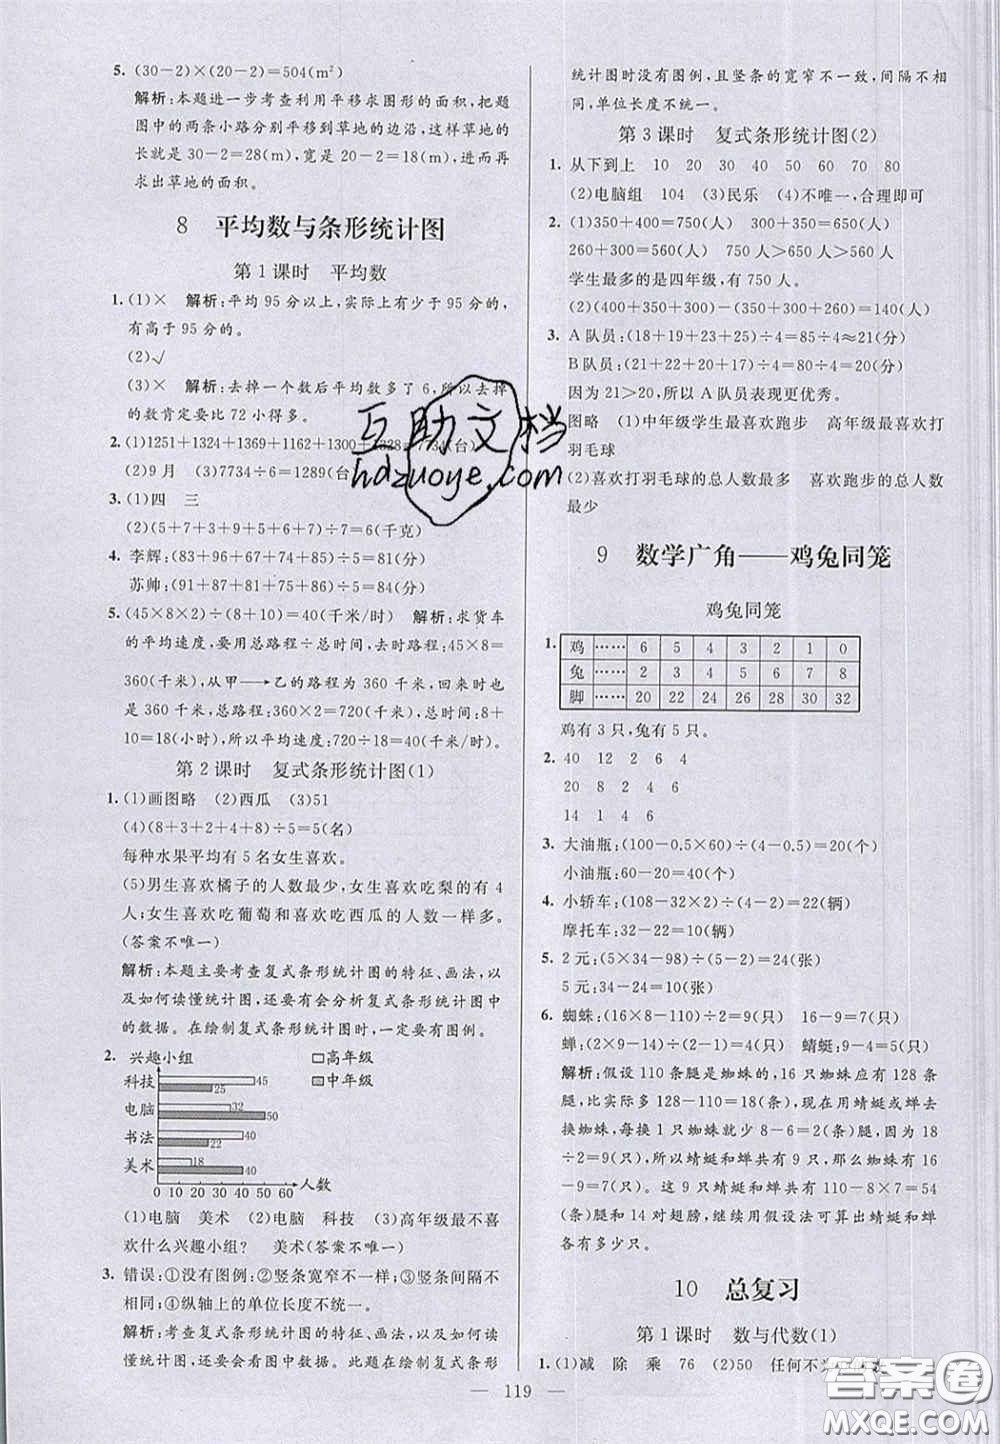 5. (30－2)×(20－2)＝504(m²)
解析:本题进一步考查利用平移求图形的面积,把题
图中的两条小路分别平移到草地的边沿,这样草地的
长就是 30－2＝28(m),宽是 20－2＝18(m),进而再
求出草地的面积。
8 平均数与条形统计图
第 1 课时 平均数
1. (1)× 解析:平均 95 分以上,实际上有少于 95 分的,
有高于 95 分的。
(2)√
(3)× 解析:去掉一个数后平均数多了 6,所以去掉
的数肯定要比 72 小得多。
2. (1)1251＋1324＋1369＋1162＋1300＋1328＝7734(台)
(2)9 月 (3)7734÷6＝1289(台
3. (1)四 三
(2)(5＋7＋3＋9＋5＋6＋7)÷7＝6(千克)
4. 李辉:(83＋96＋67＋74＋85)÷5＝81(分)
苏帅:(91＋87＋86＋87＋84)÷5＝87(分)
5. (45×8×2)÷(8＋10)＝40(千米/时) 解析:求货车
的平均速度,要用总路程÷总时间,去时路程:45×8＝
360(千米),从甲→乙的路程为 360 千米,回来时也
是 360 千米,总路程:360×2＝720(千米),总时间:8＋
10＝18(小时),所以平均速度:720÷18＝40(千米/时)。
第 2 课时 复式条形统计图(1)
1. (1)画图略 (2)西瓜 (3)51
(4)(8＋3＋2＋4＋8)÷5＝5(名)
每种水果平均有 5 名女生喜欢。
(5)男生喜欢橘子的人数最少,女生喜欢吃梨的有 4
人,女生喜欢吃葡萄和喜欢吃西瓜的人数一样多。
(答案不唯一)
解析:本题主要考查复式条形统计图的特征、画法,以
及如何读懂统计图,还要有会分析复式条形统计图中
的数据。在绘制复式条形统计图时,一定要有图例。
2. 兴趣小组 高年级
中年级
科技 45
25
电脑 32
50
书法 40
22
美术 18
40
0 10 20 30 40 50 60 人数
(1)电脑 美术 (2)电脑 科技 (3)高年级最不喜
欢什么兴趣小组? 美术(答案不唯一)
3. 错误:①没有图例;②竖条宽窄不一样;③竖条间隔不
相同;④纵轴上的单位长度不统一。
解析:考查复式条形统计图的特征、画法,以及如何读
懂统计图,并会看图中数据。此题在绘制复式条形
统计图时没有图例,且竖条的宽窄不一致,间隔不相
同,单位长度不统一。
第 3 课时 复式条形统计图(2)
1. 从下到上 10 20 30 40 50 60 70 80
(2)电脑组 104 (3)民乐 (4)不唯一,合理即可
2. (1)350＋400＝750(人) 300＋350＝650(人)
260＋300＝560(人) 750 人＞650 人＞560 人
学生最多的是四年级,有 750 人。
(2)(400＋350＋300)－(350＋300＋260)＝140(人)
3. A 队员:(18＋19＋23＋25)÷4＝85÷4≈21(分)
B 队员:(21＋21＋18＋20)÷4＝80÷4＝20(分)
因为 21＞20,所以 A 队员表现更优秀。
图略 (1)中年级学生最喜欢跑步 高年级最喜欢打
羽毛球
(2)喜欢打羽毛球的总人数最多 喜欢跑步的总人数
最少
9 数学广角——鸡兔同笼
鸡兔同笼
1. 鸡 …… 6 5 4 3 2 1 0
兔 …… 2 3 4 5 6 7 8
脚 …… 20 22 24 26 28 30 32
鸡有 3 只,兔有 5 只。
2. 40 12 2 6 4
20 8 2 6 4
14 1 4 6
3. 大油瓶:(100－0.5×60)÷(4－0.5)＝20(个)
小油瓶:60－20＝40(个)
4. 小轿车:(108－32×2)÷(4－2)＝22(辆)
摩托车:32－22＝10(辆)
5. 2 元:(5×34－98)÷(5－2)＝24(张)
5 元:34－24＝10(张)
6. 蜘蛛:(16×8－110)÷2＝9(只) 16－9＝7(只)
蝉:(2×9－14)÷(2－1)＝4(只) 蜻蜓:9－4＝5(只)
解析:假设 110 条腿是蜘蛛的,16 只蜘蛛应有 128 条
腿。比实际多 128－110＝18(条)腿,如果用蜻蜓或蝉去
换蜘蛛,每换 1 只蜘蛛就少 8－6＝2(条)腿,因为 18
÷2＝9(只),所以蜻蜓和蝉共有 9 只,那么蜘蛛就有
16－9＝7(只)。这 9 只蜻蜓和蝉共有 110－8×7＝54
(条)腿和 14 对翅膀,继续用假设法可算出蜻蜓和蝉
各有多少只。
10 总复习
第 1 课时 数与代数(1)
1. (1)减 除 乘 76 (2)50 任何不为
— 119 —
互助文档
hdzuoye.com
答案圈
MXQE.COM